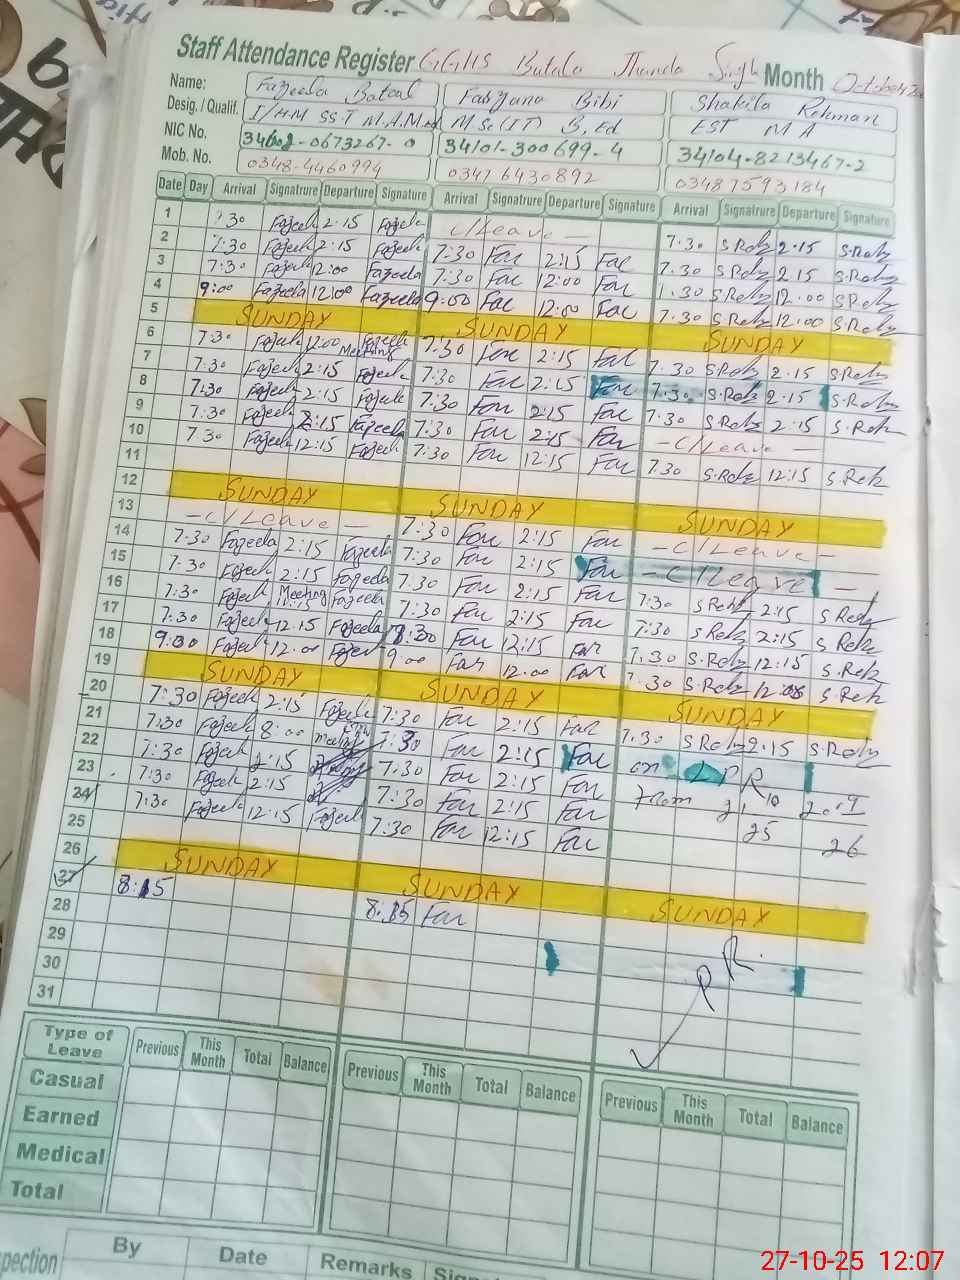 Staff Attendance Register GGHS Butala Jhanda Singh Month October
Name: Fazeela Batool Farzana Bibi Shakila Rehman
Desig. / Qualif. I/HM SST M.A, M.ed M Sc (IT) B.Ed EST M A
NIC No. 34602-0673267-0 34101-300699-4 34104-8213467-2
Mob. No. 0348-4460994 03476430892 03487593184
Date Day Arrival Signatrure Departure Signature Arrival Signatrure Departure Signature Arrival Signatrure Departure Signature
1 7:30 Fazeela 2:15 Fazeela C/Leave 7:30 S Reh 2.15 S.Reh
2 7:30 Fazeela 2:15 Fazeela 7:30 Far 2:15 Far 7.30 S Reh 2 15 S.Reh
3 7:30 Fazeela 12:00 Fazeela 7:30 Far 12:00 Far 7.30 S Reh 12.00 S.Reh
4 9:00 Fazeela 12:00 Fazeela 9:00 Far 12:00 Far 7.30 S Reh 12:00 S.Reh
5 SUNDAY SUNDAY SUNDAY
6 7:30 Fazeela 12:00 Meeting Fazeela 7:30 Far 2:15 Far 7.30 S Reh 2.15 S Reh
7 7:30 Fazeela 2:15 Fazeela 7:30 Far 2:15 Far 7.30 S.Reh 2.15 S.Reh
8 7:30 Fazeela 2:15 Fazeela 7:30 Far 2:15 Far 7.30 S.Reh 2:15 S.Reh
9 7:30 Fazeela 2:15 Fazeela 7:30 Far 2:15 Far - C/Leave -
10 7:30 Fazeela 12:15 Fazeela 7:30 Far 12:15 Far 7.30 S.Reh 12:15 S.Reh
11
12 SUNDAY SUNDAY SUNDAY
13 - C/Leave - 7:30 Far 2:15 Far - C/Leave -
14 7:30 Fazeela 2:15 Fazeela 7:30 Far 2:15 Far - C/Leave -
15 7:30 Fazeela 2:15 Fazeela 7:30 Far 2:15 Far 7:30 S Reh 2:15 S Reh
16 7:30 Fazeela Meeting Fazeela 7:30 Far 2:15 Far 7:30 S Reh 2:15 S Reh
17 7:30 Fazeela 12:15 Fazeela 8:30 Far 12:15 Far 7.30 S.Reh 12:15 S.Reh
18 9:00 Fazeela 12:00 Fazeela 9:00 Far 12.00 Far 7:30 S.Reh 12:00 S.Reh
19 SUNDAY SUNDAY SUNDAY
20 7:30 Fazeela 2:15 Fazeela 7:30 Far 2:15 Far 7.30 S Reh 2.15 S.Reh
21 7:30 Fazeela 8:00 meeting 7:30 Far 2:15 Far on LPR
22 7:30 Fazeela 2:15 7:30 Far 2:15 Far From 21 10 25
23 7:30 Fazeela 2:15 7:30 Far 2:15 Far 26
24 7:30 Fazeela 12:15 Fazeela 7:30 Far 12:15 Far
25
26 SUNDAY SUNDAY SUNDAY
27 8:15 8:15 Far
28
29 PR.
30
31
Type of Leave Previous This Month Total Balance Previous This Month Total Balance Previous This Month Total Balance
Casual
Earned
Medical
Total
By Date Remarks
27-10-25 12:07